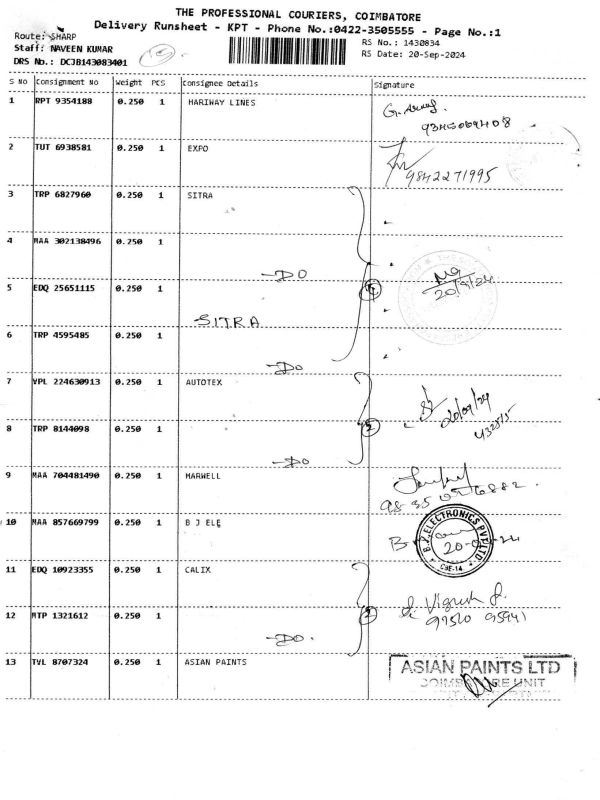 THE PROFESSIONAL COURIERS, COIMBATORE
Delivery Runsheet - KPT - Phone No.:0422-3505555 - Page No.:1
Route: SHARP
RS No.: 1430834
Staff: NAVEEN KUMAR
RS Date: 20-Sep-2024
DRS No.: DCJB143083401
S NO Consignment No Weight PCS Consignee Details Signature
1 RPT 9354188 0.250 1 HARIWAY LINES
2 TUT 6938581 0.250 1 EXPO
9842271995
3 TRP 6827960 0.250 1 SITRA
4 MAA 302138496 0.250 1
-DO
5 EDQ 25651115 0.250 1
20/9/24
SITRA
6 TRP 4595485 0.250 1
-DO
7 VPL 224630913 0.250 1 AUTOTEX
20/09/24
8 TRP 8144098 0.250 1 2
-DO
9 MAA 704481490 0.250 1 MARWELL
10 MAA 857669799 0.250 1 B J ELE
B.J. ELECTRONICS PVT LTD
CBE-14
11 EDQ 10923355 0.250 1 CALIX
Vignesh
97520 95941
12 MTP 1321612 0.250 1 2
-DO.
13 TVL 8707324 0.250 1 ASIAN PAINTS
ASIAN PAINTS LTD